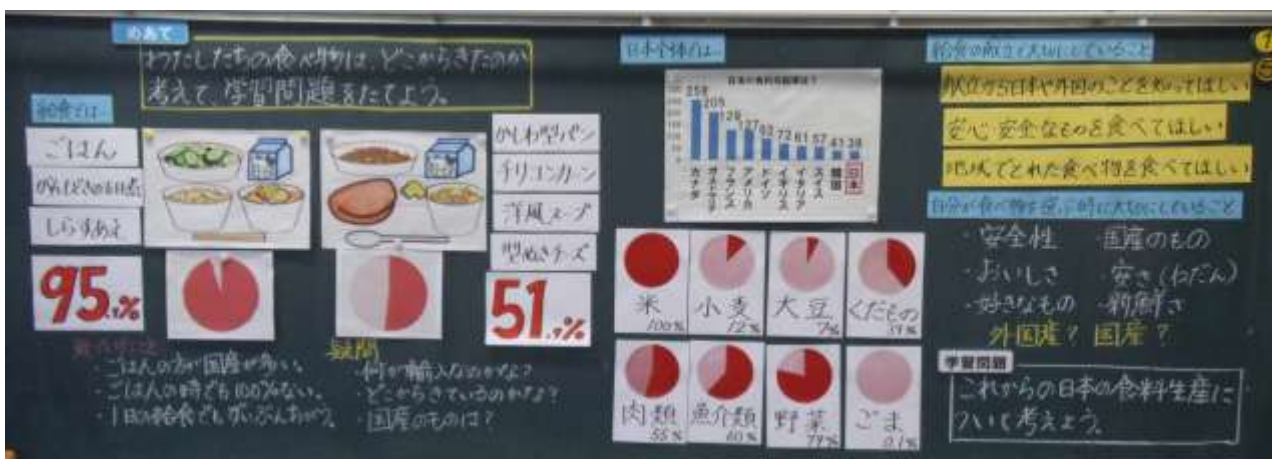 のあて
わたしたちの食べ物は、どこからきたのか
考えて、学習問題をたてよう。
給食では…
ごはん
がんもどきの
しらすあえ
95.
%
かしわ型パン
チリコンカーン
洋風スープ
型ぬきチーズ
51.
%
・ごはんの方が国産が多い。
・ごはんの時でも100%ない。
・1日の給食でもずいぶんちがう。
疑問
・何が輸入なのかな?
・どこからきているのかな?
・国産のものは?
日本全体では…
日本の食料自給率は?
258
205
129
127
92
72
61
57
41
38
カナダ
オーストラリア
フランス
アメリカ
ドイツ
イギリス
イタリア
スイス
韓国
日本
米
100%
小麦
12%
大豆
7%
くだもの
39%
肉類
55%
魚介類
60%
野菜
79%
ごま
0.1%
給食の献立で大切にしていること
献立から日本や外国のことを知ってほしい
安心安全なものを食べてほしい
地域でとれた食べ物を食べてほしい
自分が食べ物を選ぶ時に大切にしていること
・安全性
・国産のもの
・おいしさ
・安さ(ねだん)
・好きなもの
・新鮮さ
外国産? 国産?
学習問題
これからの日本の食料生産に
ついて考えよう。